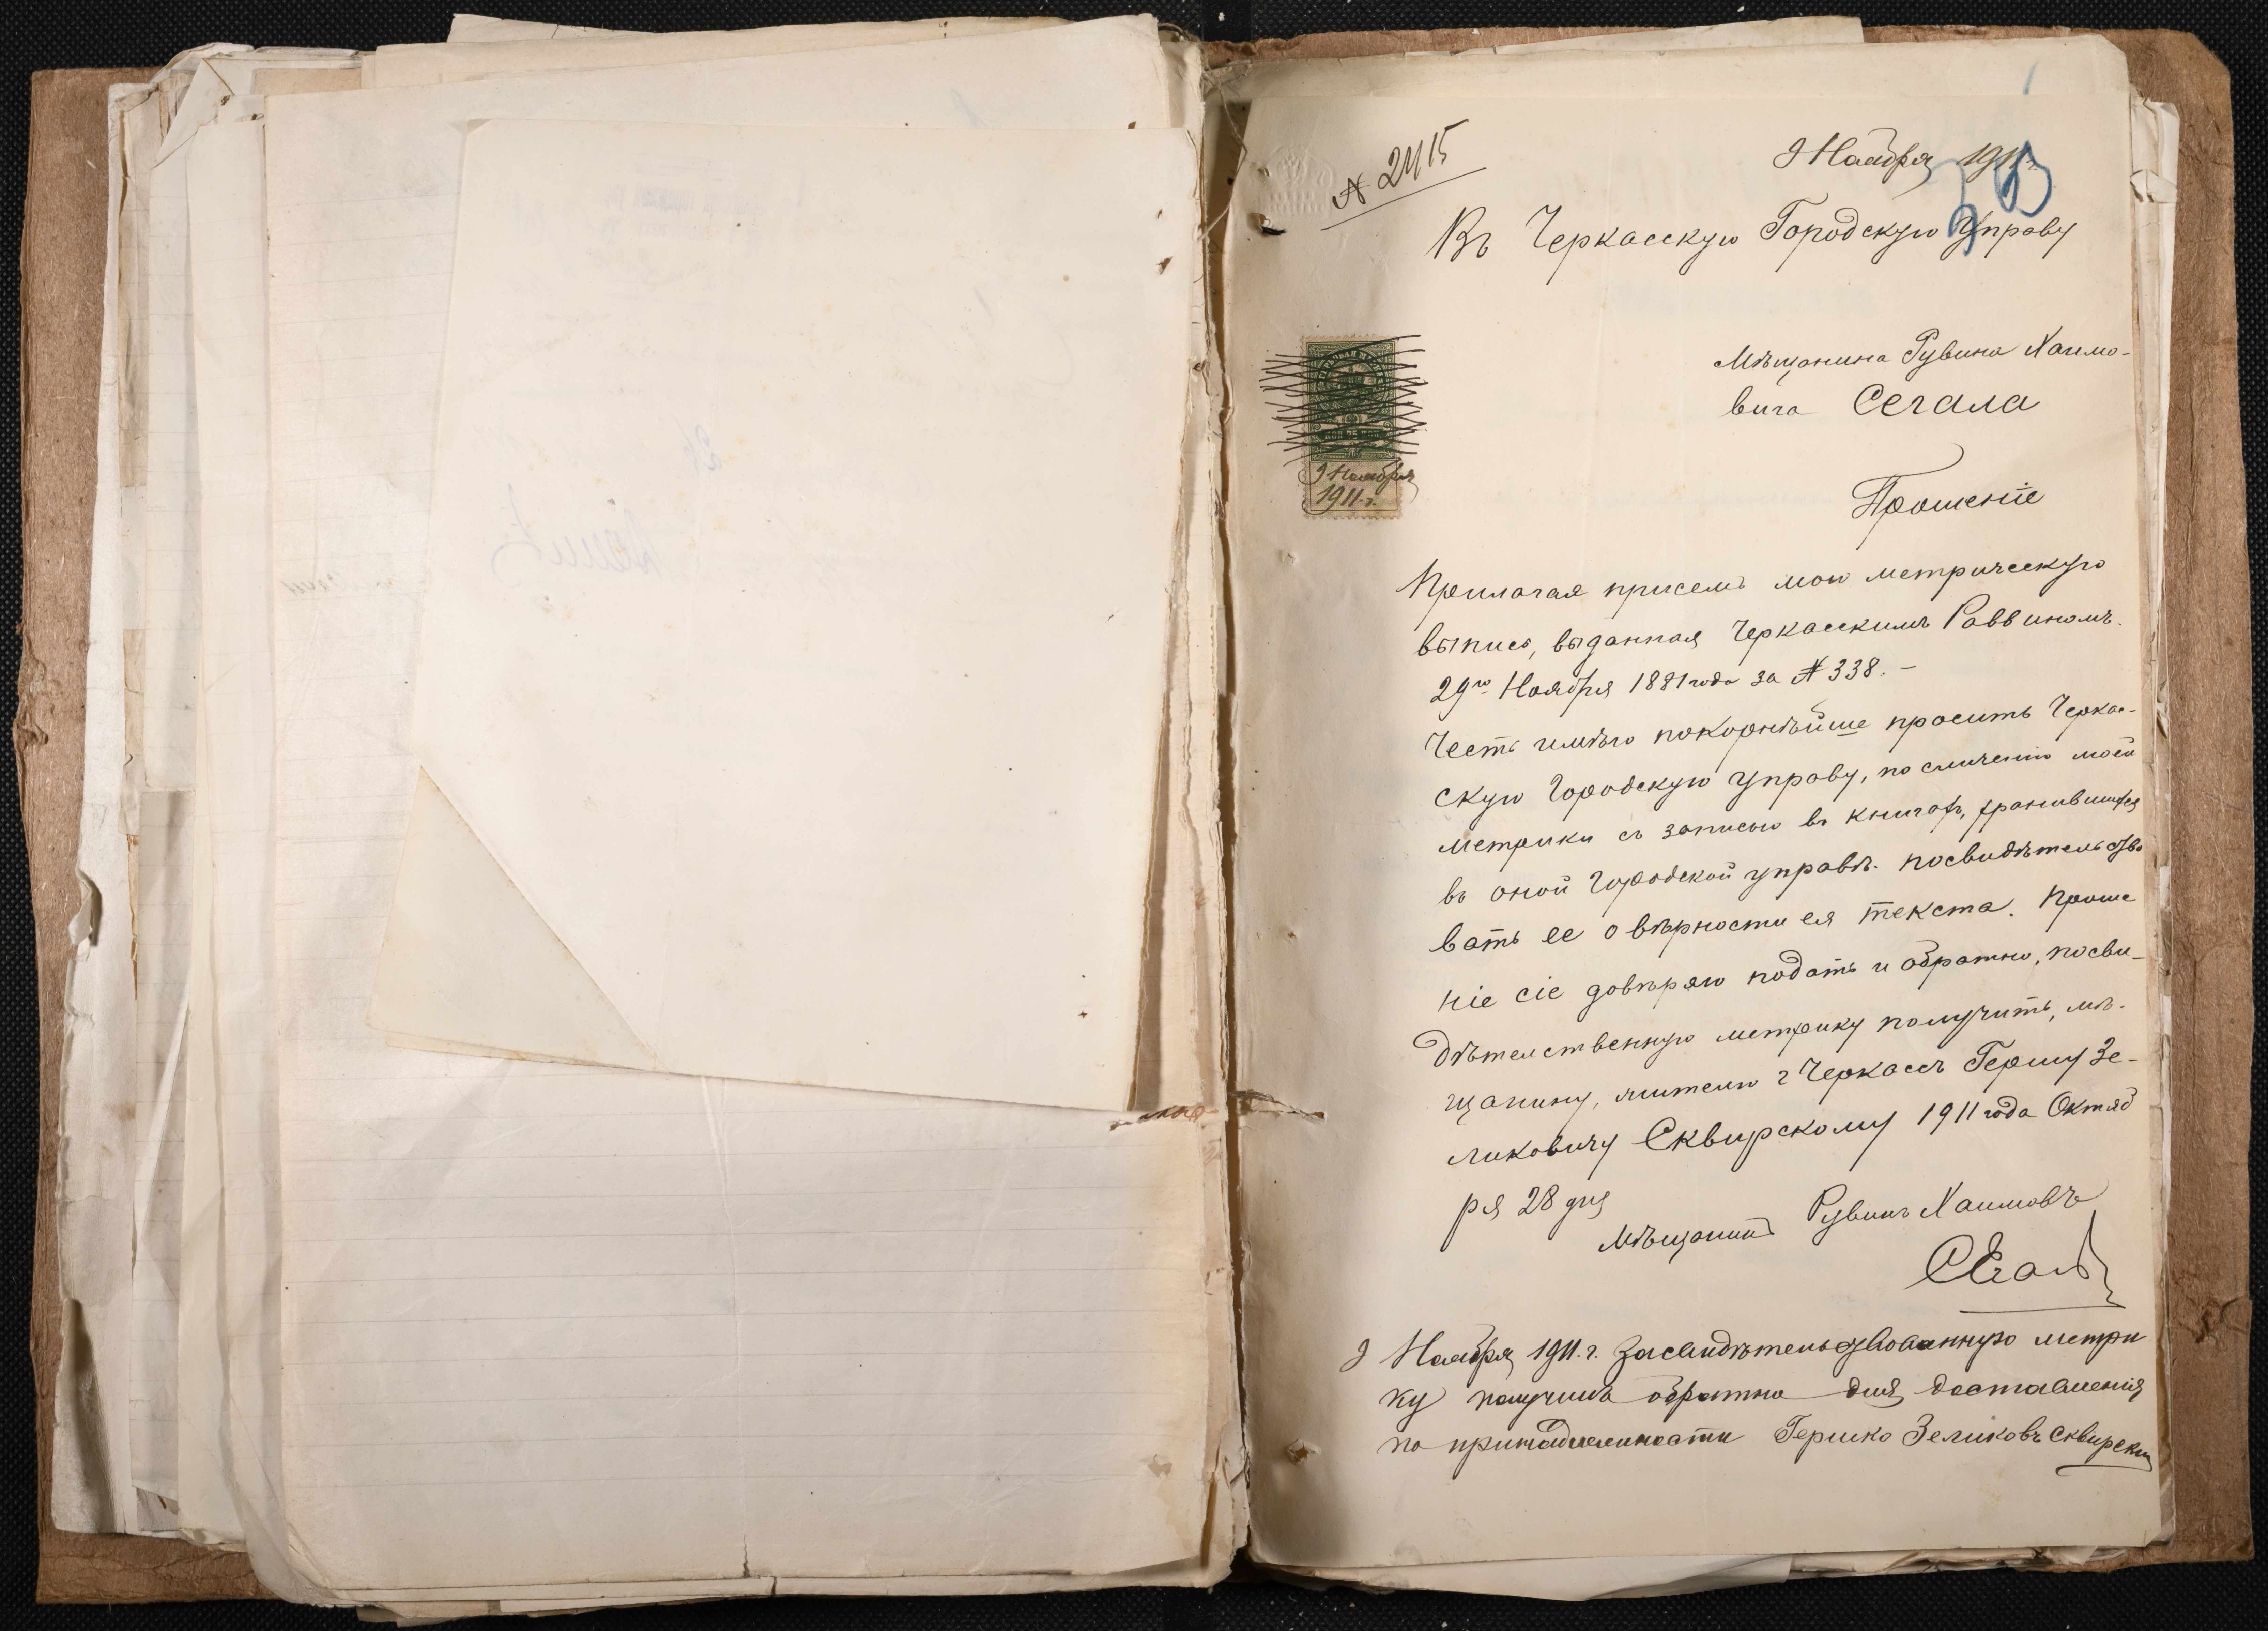 № 2415
9 Ноября 1911 г.
Въ Черкасскую Городскую Управу
Мѣщанина Рувина Хаимо-
вича Сегала
9 Ноября
1911 г.
Прошеніе
Прилагая присемъ мою метрическую
выпись, выданная Черкасскимъ Раввиномъ
29го Ноября 1881 года за № 338. –
Честь имѣю покорнѣйше просить Черкас-
скую Городскую Управу, по сличеніи моей
метрики съ записью въ книгахъ, хранившихся
въ оной Городской управѣ. посвидѣтельство
вать ее о вѣрности ея текста. Проше
ніе сіе довѣряю подать и обратно, посви-
дѣтелственную метрику получить, мѣ-
щанину, жителю г Черкассъ Гершу Зе-
ликовичу Сквирскому 1911 года Октяб
ря 28 дня
Мѣщанинъ Рувинъ Хаимовъ
Сегалъ
9 Ноября 1911 г. засвидѣтельствованную метри
ку получилъ обратно для доставленія
по принадлежности Гершко Зеликовъ Сквирскій